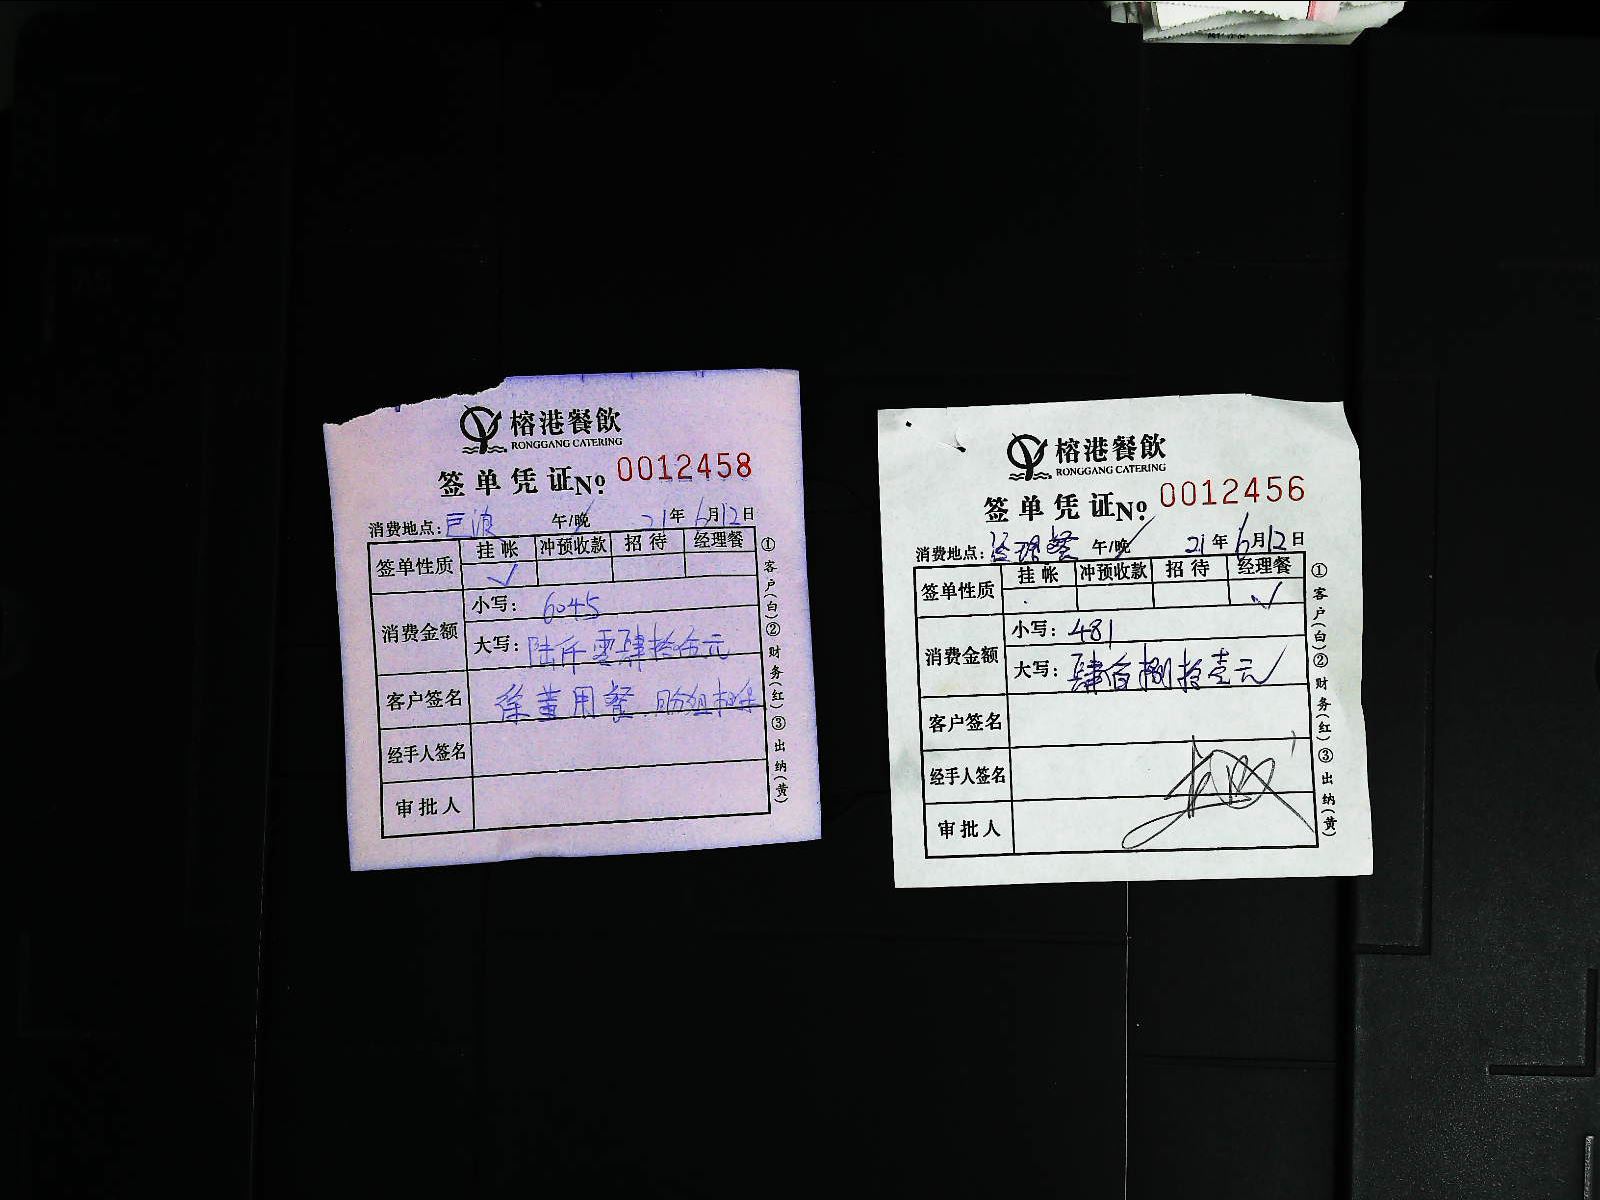 榕港餐飲
RONGGANG CATERING
签单凭证 No. 0012458
消费地点: 巨浪 午/晚 21年6月12日
签单性质 挂帐 冲预收款 招待 经理餐
✓
消费金额 小写: 6045
大写: 陆仟零肆拾伍元
客户签名 徐董用餐
经手人签名
审批人
①客户(白)②财务(红)③出纳(黄)
榕港餐飲
RONGGANG CATERING
签单凭证 No. 0012456
消费地点: 经理餐 午/晚 21年6月12日
签单性质 挂帐 冲预收款 招待 经理餐
✓
消费金额 小写: 481
大写: 肆佰捌拾壹元
客户签名
经手人签名
审批人
①客户(白)②财务(红)③出纳(黄)